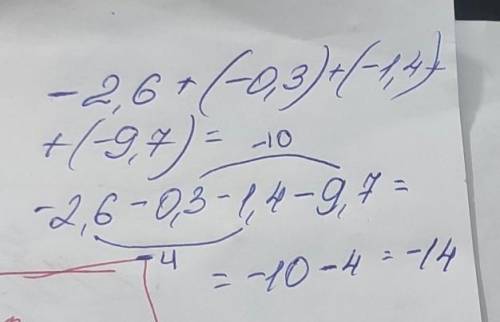 -2,6 + (-0,3) + (-1,4) +
+ (-9,7) =
-10
-2,6 - 0,3 - 1,4 - 9,7 =
-4
= -10 - 4 = -14